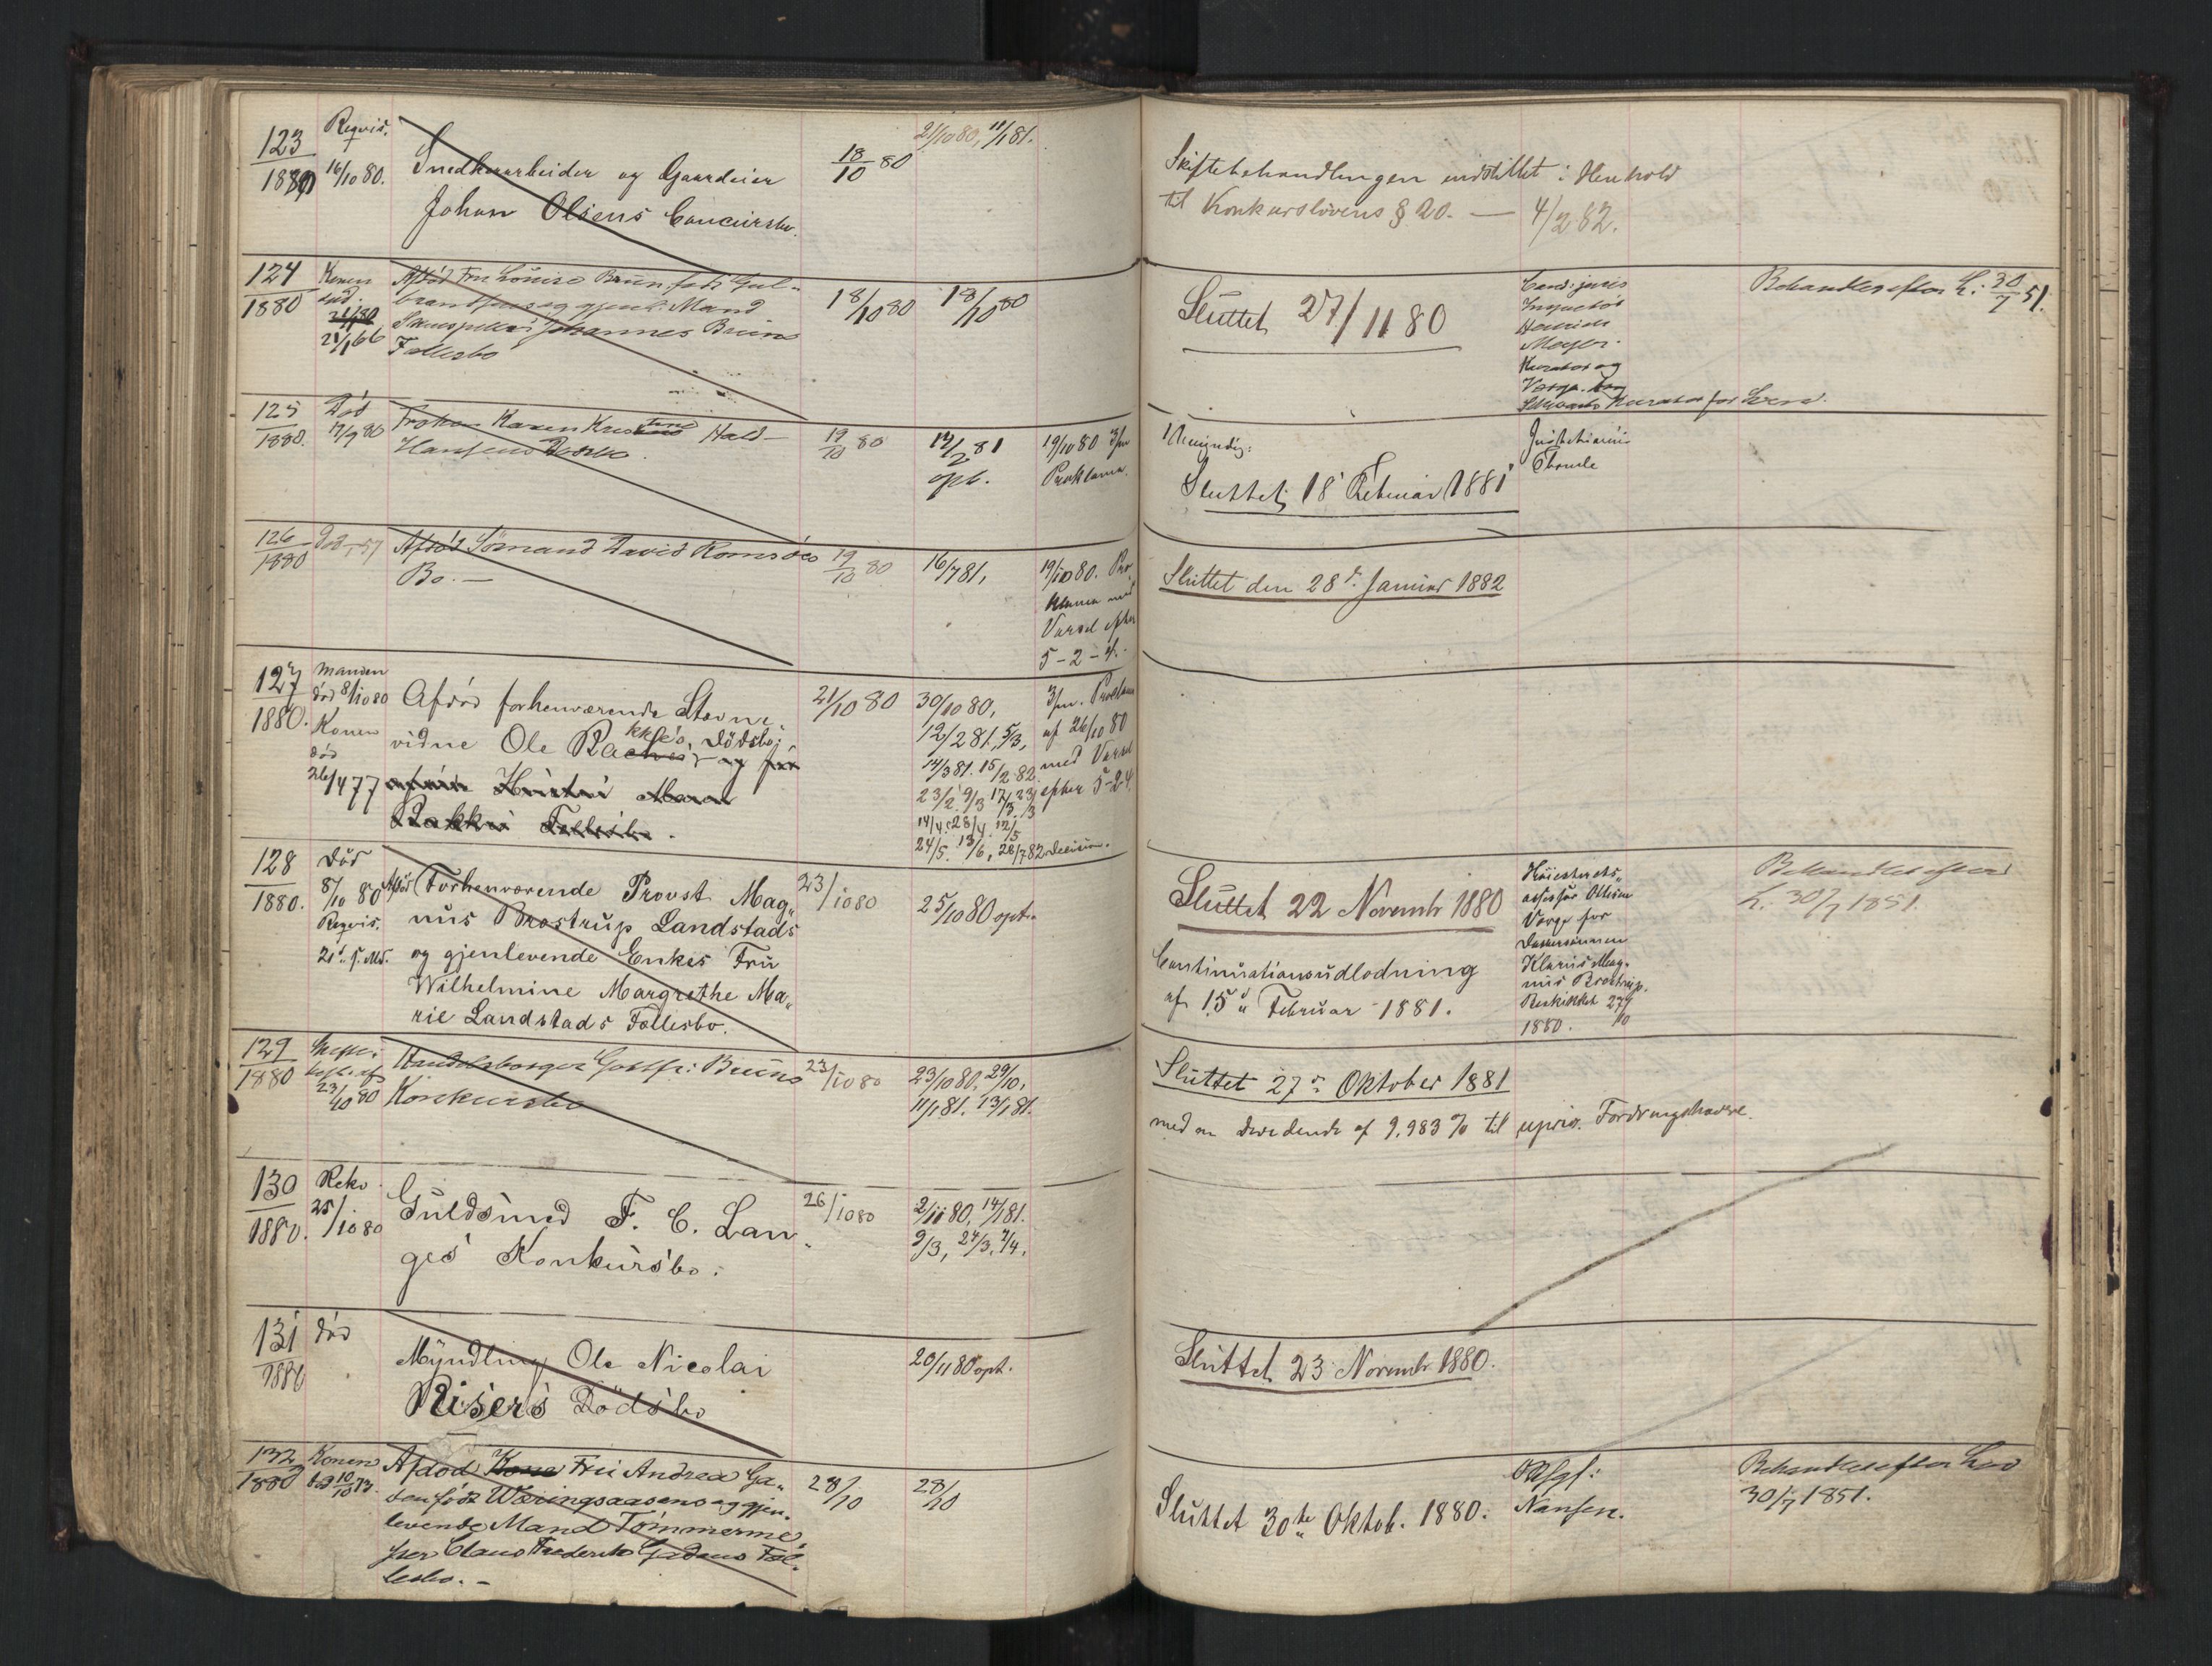 123
1880
Reqvis.
16/10 80.
Snedkerarbeider og Gaardeier
Johan Olsens Concursbo.
18/10 80
21/10 80, 11/1 81.
Skiftebehandlingen indstillet i Henhold
til Konkurslovens § 20. — 4/2 82.
124
1880
Konen
død.
21/1 66
Afdød Fru Louise Brun, født Gul-
brandsens og gjenl. Mand
Skuespiller Johannes Bruns
Fællesbo
18/10 80
18/10 80
Sluttet 27/11 80
Cand: juris
Henrich
Meyer.
Kurator og
Værge.
Kurator for
Behandles efter L: 30/7 51.
125
1880.
Død
17/9 80
Frøken Karen Kristine Hald-
Hansens Dødsbo.
19/10 80
14/2 81
opt.
19/10 80 3/m
Proklama.
1 Umyndig:
Sluttet 18 Februar 1881
Justitiarius
Thomle
126
1880
Død,
Afdød Sømand David Romsøes
Bo. —
19/10 80
16/7 81,
19/10 80. Pro-
klama med
Varsel efter
5-2-4.
Sluttet den 28de Januar 1882
127
1880.
Manden
død 8/10 80
Konen
død
26/4 77
Afdød forhenværende Stævne-
vidne Ole Bakkes, Dødsbo;
Fællesbo.
21/10 80
30/10 80,
12/2 81, 5/3,
14/3 81. 15/2 82.
23/2. 9/3 17/3. 23/3
14/4. 28/4. 12/5
24/5. 13/6, 28/7 82 Decision.
3/m. Proklama
af 26/10 80
med Varsel
efter 5-2-4.
128
1880.
Død
8/10 80
Reqvis.
21d. s. Md.
Afdød Forhenværende Provst Mag-
nus Brostrup Landstads
og gjenlevende Enkes Fru
Wilhelmine Margrethe Ma-
rie Landstads Fællesbo.
23/10 80
25/10 80 opt.
Sluttet 22 Novembr 1880
Continuationsudlodning
af 15d Februar 1881.
Høiesterets-
assessor Ottesen
Værge for
Mag-
nus Brostrup.
Beskikket 27/10
1880.
Behandles efter
L. 30/7 1851.
129
1880
23/10 80
Handelsborger Gottfr: Bruuns
Konkursbo
23/10 80
23/10 80, 29/10,
11/1 81. 13/1 81.
Sluttet 27de Oktober 1881
med en Dividende af 9,983 % til upriv. Fordringshavere.
130
1880.
Rekv.
25/10 80
Guldsmed F. C. Lan-
ges Konkursbo.
26/10 80
2/11 80, 14/1 81.
9/3, 24/3, 7/4.
131
1880
død
Myndling Ole Nicolai
Risers Dødsbo
20/11 80 opt.
Sluttet 23 Novembr 1880.
132
1880
Konen
død 10/10 73.
Afdød Kone Fru Andrea Ga-
den født Wæringsaasens og gjen-
levende Mand Tømmerme-
ster Claus Frederik Gadens Fæl-
lesbo. —
28/10
28/10
Sluttet 30te Oktob. 1880.
Nansen.
Behandles efter Lov
30/7 1851.